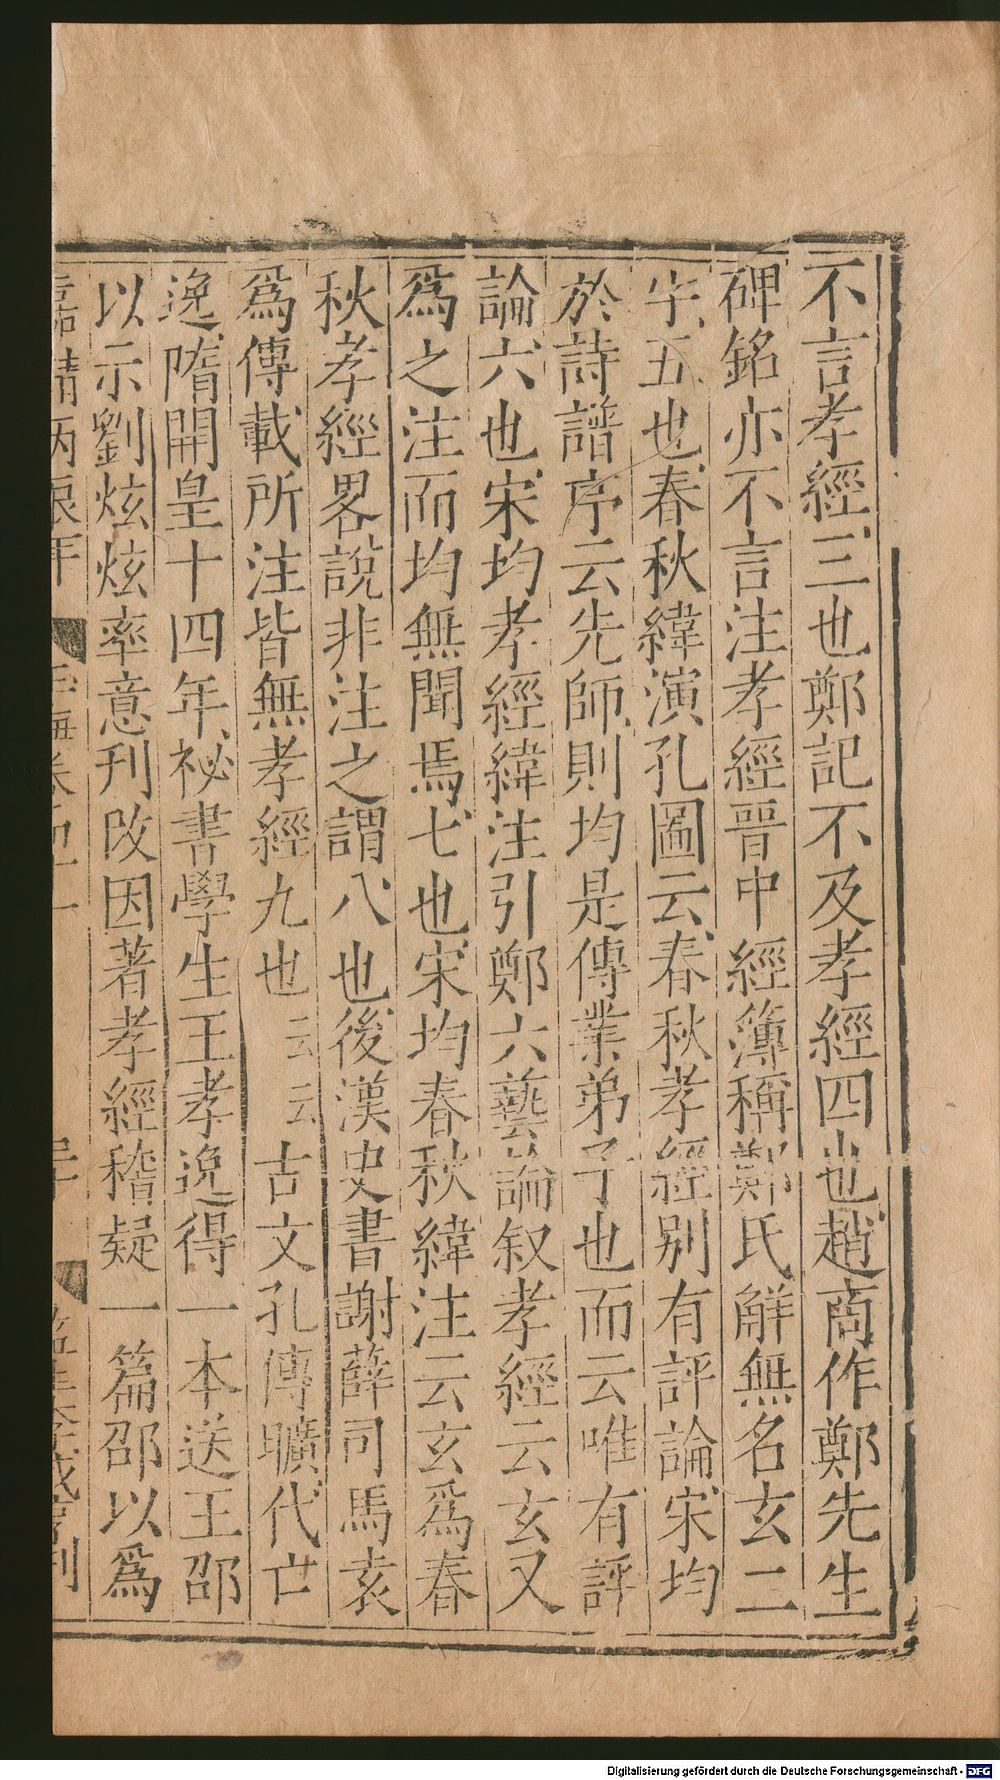 不言孝經三也鄭記不及孝經四也趙商作鄭先生
碑銘亦不言注孝經晉中經簿稱鄭氏解無名玄二
字五也春秋緯演孔圖云春秋孝經别有評論宋均
於詩譜序云先師則均是傳業弟子也而云唯有評
論六也宋均孝經緯注引鄭六藝論叙孝經云玄又
爲之注而均無聞焉七也宋均春秋緯注云玄爲春
秋孝經畧說非注之謂八也後漢史書謝薛司馬袁
爲傳載所注皆無孝經九也云云古文孔傳曠代亡
逸隋開皇十四年祕書學生王孝逸得一本送王邵
以示劉炫炫率意刊改因著孝經稽疑一篇邵以爲
嘉靖丙辰年 玉海卷四十一 監生李成亨刊
Digitalisierung gefördert durch die Deutsche Forschungsgemeinschaft - DFG